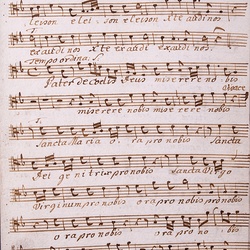 eleison elei son eleison Xte audi nos
exaudi nos Xte exaudi exaudi nos.
Tempo ordina: S.
Pater de coelis Deus miserere nobis
miserere nobis miserere nobis
T.
Sancta Maria ora pro nobis Sancta
Dei genitrix pro nobis Sancta Virgo
Virginum pro nobis ora pro nobis ora pro nobis
ora pro nobis ora pro nobis